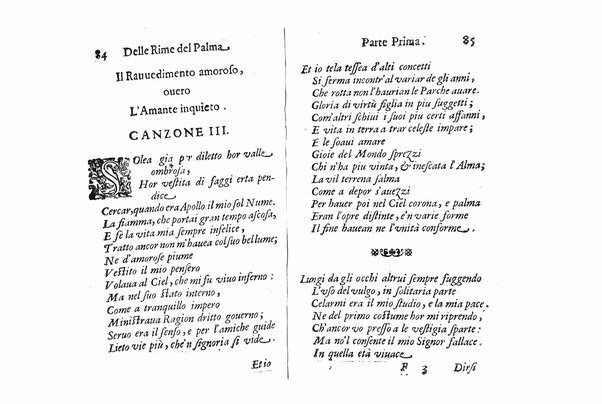 84 Delle Rime del Palma
Il Rauuedimento amoroso,
ouero
L'Amante inquieto.
CANZONE III.
Solea gia pr diletto hor valle
ombrosa,
Hor vestita di faggi erta pen-
dice
Cercar, quando era Apollo il mio sol Nume.
La fiamma, che portai gran tempo ascosa,
E fe la vita mia sempre infelice,
Tratto ancor non m'hauea col suo bel lume;
Ne d'amorose piume
Vestito il mio pensero
Volaua al Ciel, che mi fu viuo inferno:
Ma nel suo stato interno,
Come a tranquillo impero
Ministraua Ragion dritto gouerno;
Seruo era il senso, e per l'amiche guide
Lieto vie più, che'n signoria si vide.
Et io
Parte Prima. 85
Et io tela tessea d'alti concetti
Si ferma incontr'al variar de gli anni,
Che rotta non l'haurian le Parche auare.
Gloria di virtù figlia in piu suggetti;
Com'altri schiui i suoi piu certi affanni,
E vita in terra a trar celeste impare;
E le soaui amare
Gioie del Mondo sprezzi
Chi n'ha piu vinta, & inescata l'Alma;
La vil terrena salma
Come a depor s'auezzi
Per hauer poi nel Ciel corona, e palma
Eran l'opre distinte, e'n varie forme
Il fine hauean ne l'vnità conforme.
Lungi da gli occhi altrui sempre fuggendo
L'vso del vulgo, in solitaria parte
Celarmi era il mio studio, e la mia pace.
Ne del primo costume hor mi riprendo,
Ch'ancor vo presso a le vestigia sparte:
Ma no'l consente il mio Signor fallace.
In quella età viuace
F 3 Dirsi